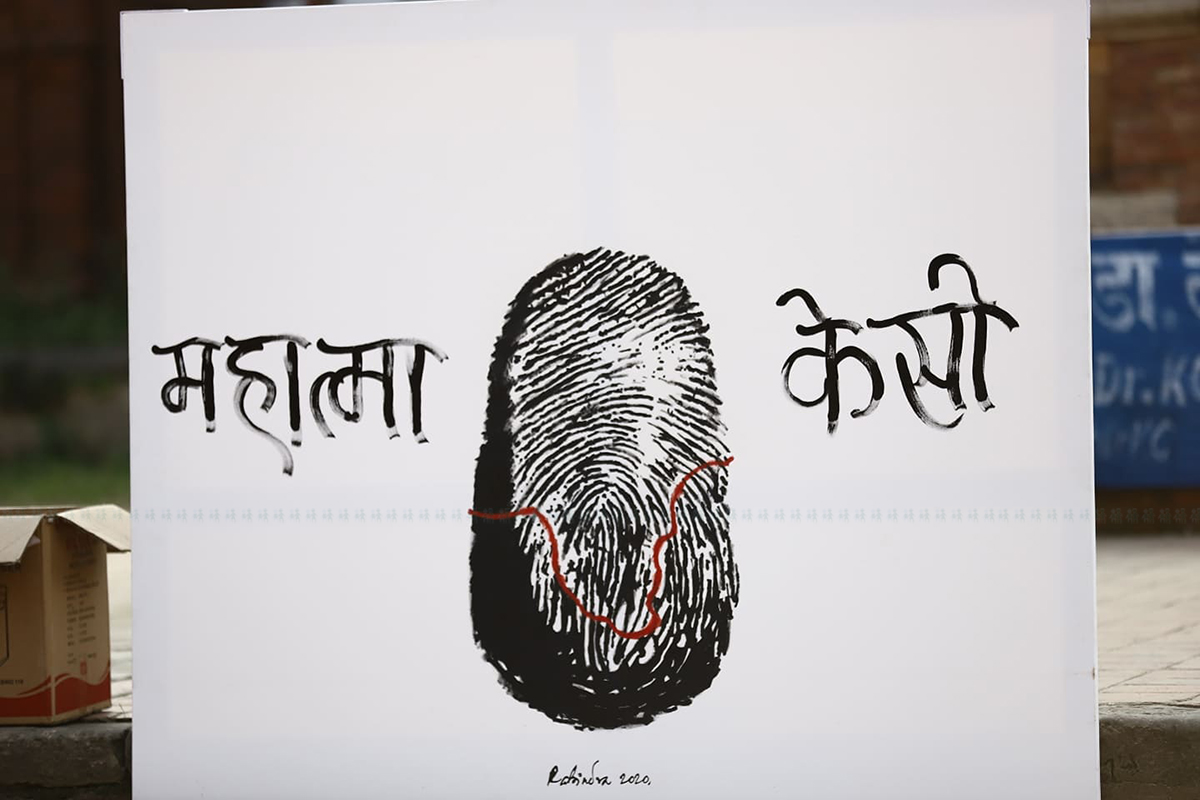 महात्मा केसी
डा.
Dr. K
Rabindra 2020.